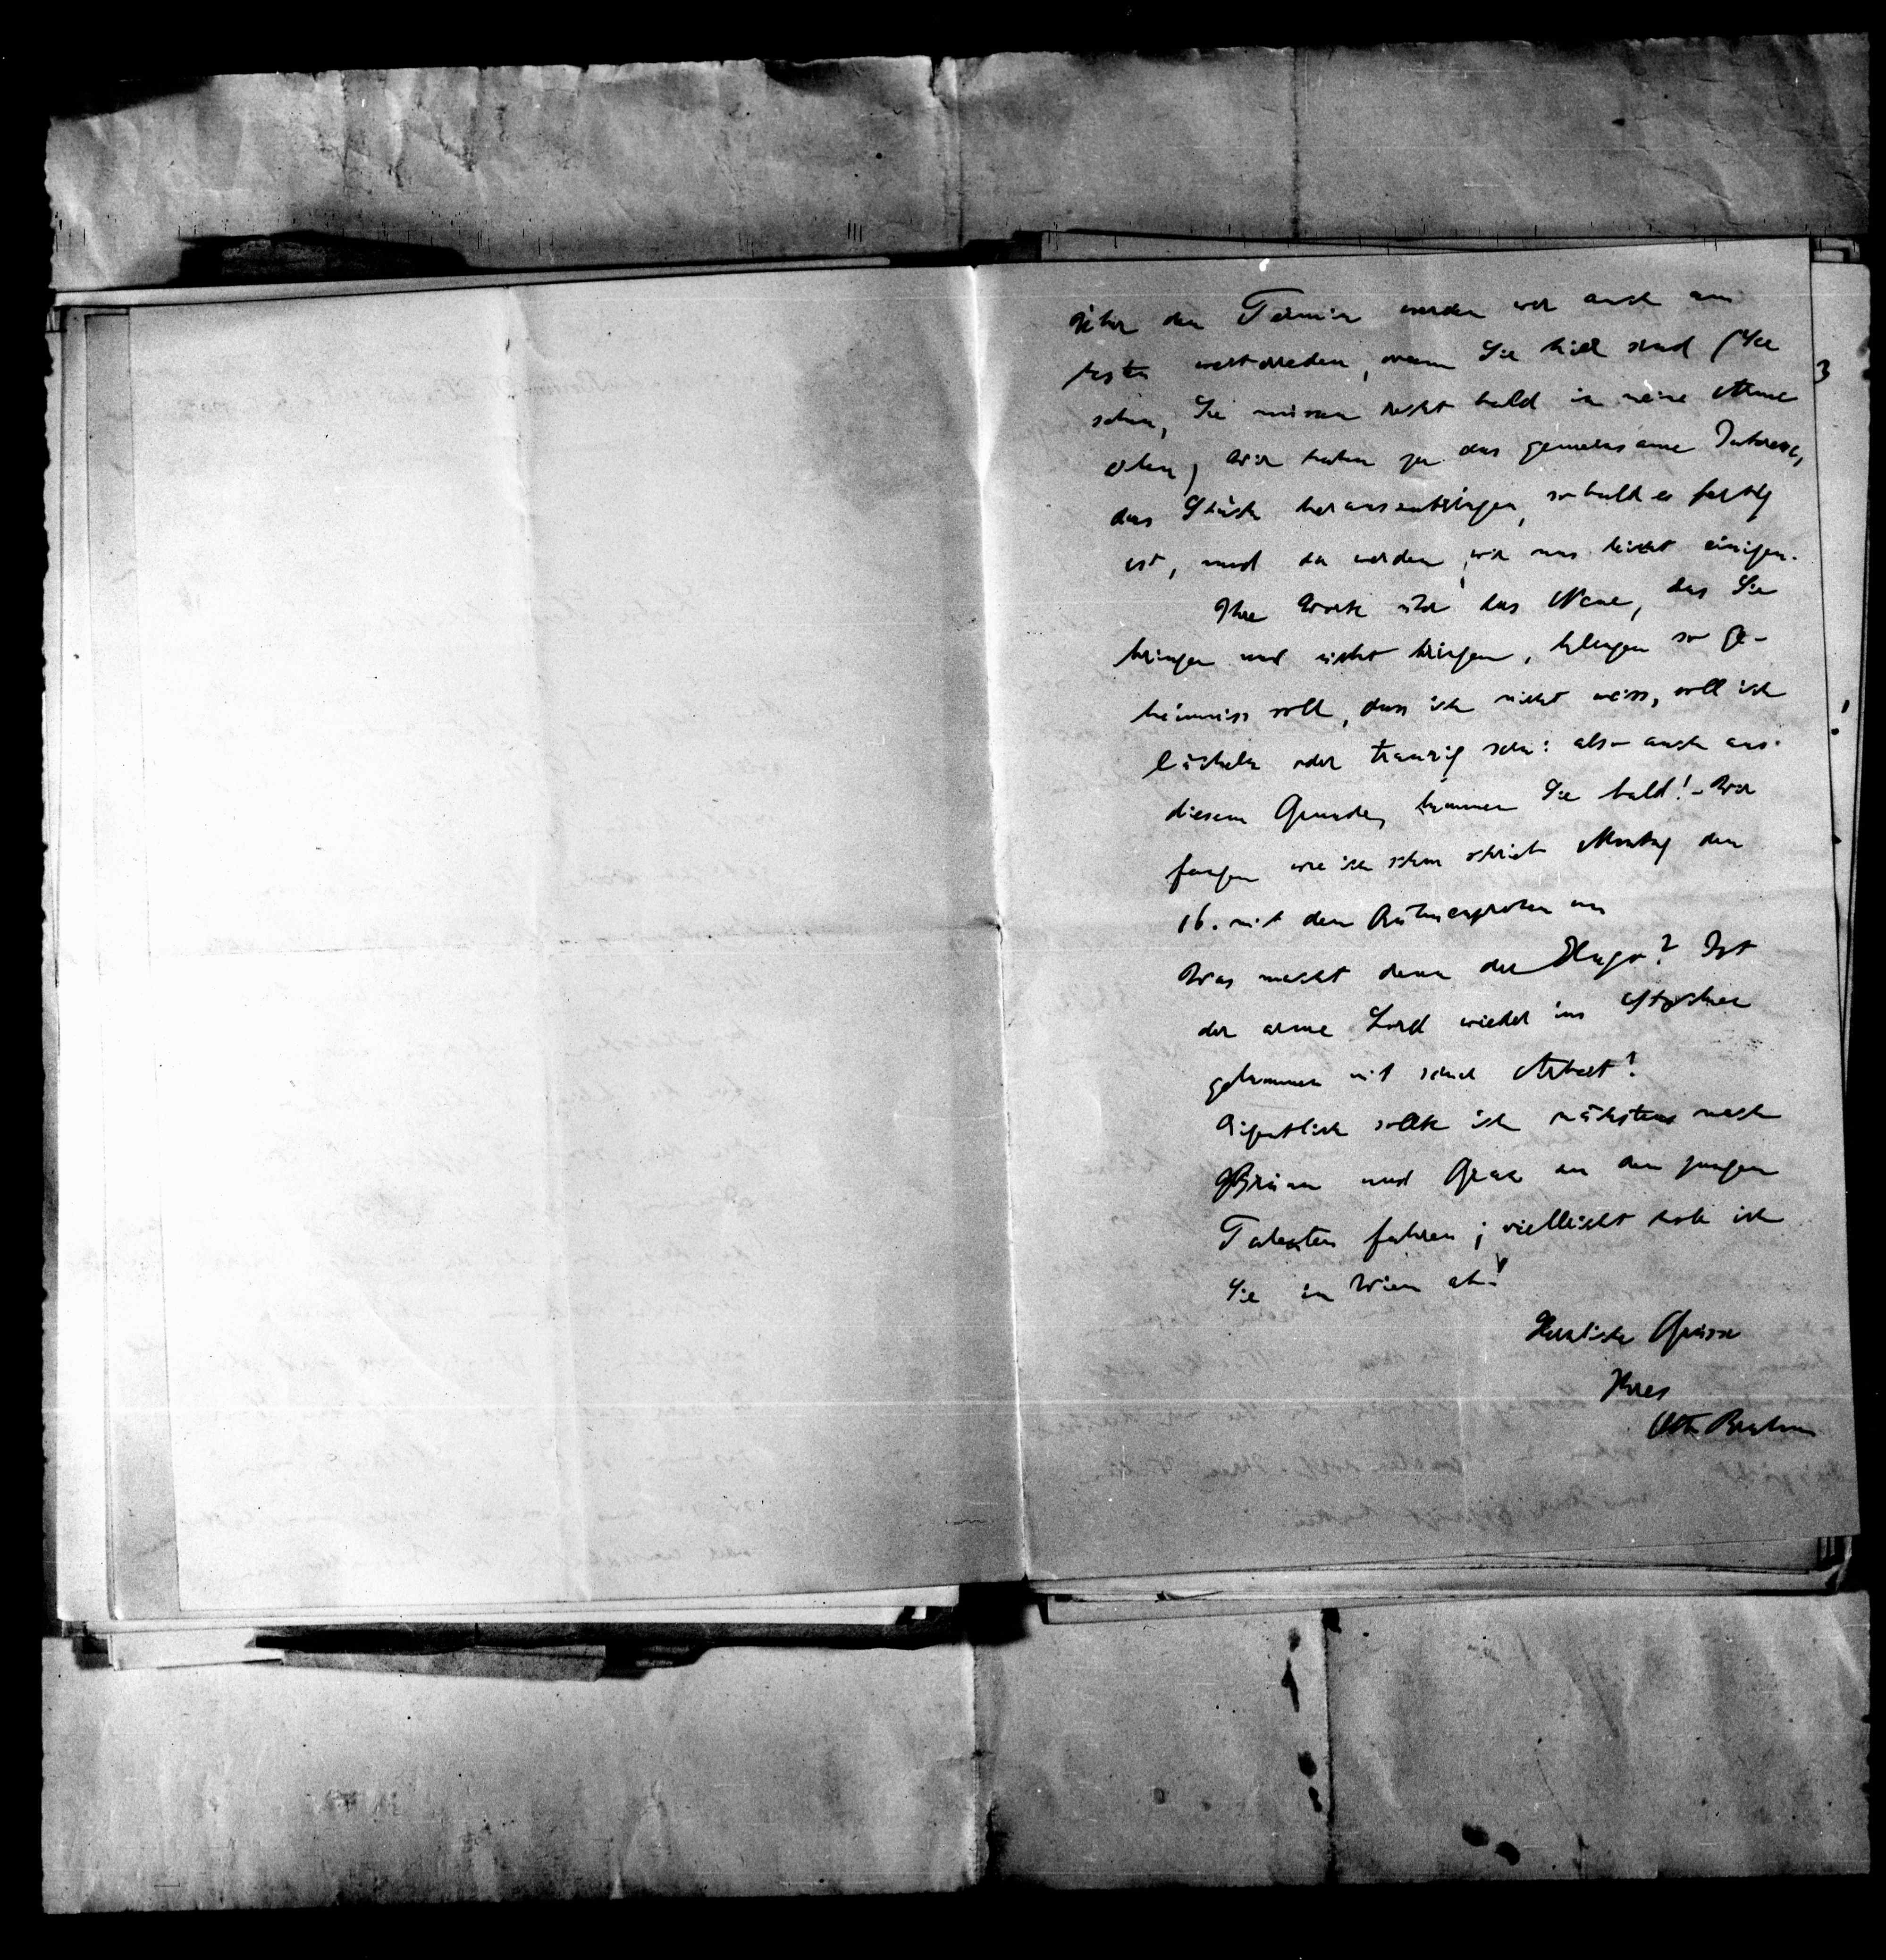 Ueber den Termin werden wir auch am
besten verhandeln, wenn Sie hier sind (Sie
sehen, Sie müssen recht bald in meine Arme
eilen) wir haben ja das gemeinsame Interesse,
das Stück herauszubringen, sobald es fertig
ist, und da werden wir uns leicht einigen.
Ihre Worte über das Neue, das Sie
bringen und nicht bringen, klingen so ge-
heimniss voll, dass ich nicht weiss, soll ich
lächeln oder traurig sein: also auch aus
diesem Grunde, kommen Sie bald! – Wir
fangen wie ich schon schrieb Montag den
16. mit den Bühnenproben an
Was macht denn der Hugo? Ist
der arme Lord wieder ins Stocken
gekommen mit seiner Arbeit?
Eigentlich sollte ich nächstens nach
Brünn und Graz zu den jungen
Talenten fahren; vielleicht hole ich
Sie in Wien ab!
Herzliche Grüsse
Ihres
Otto Brahm
3